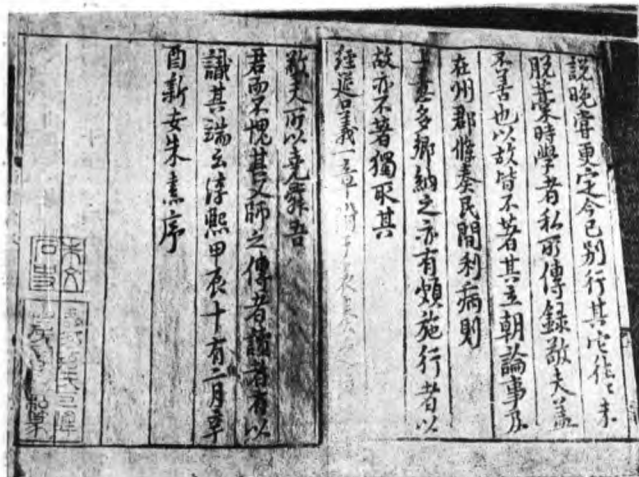 說晚嘗更定今已別行其它往往未
脫藁時學者私所傳錄敬夫蓋
不善也以故皆不著其立朝論事及
在州郡條奏民間利病則
上意多鄉納之亦有頗施行者以
故亦不著獨取其
經筵口義一章附于表奏之
敬夫所以堯舜吾
君而不愧其父師之傳者讀者有以
識其端云淳熙甲辰十有二月辛
酉新安朱熹序